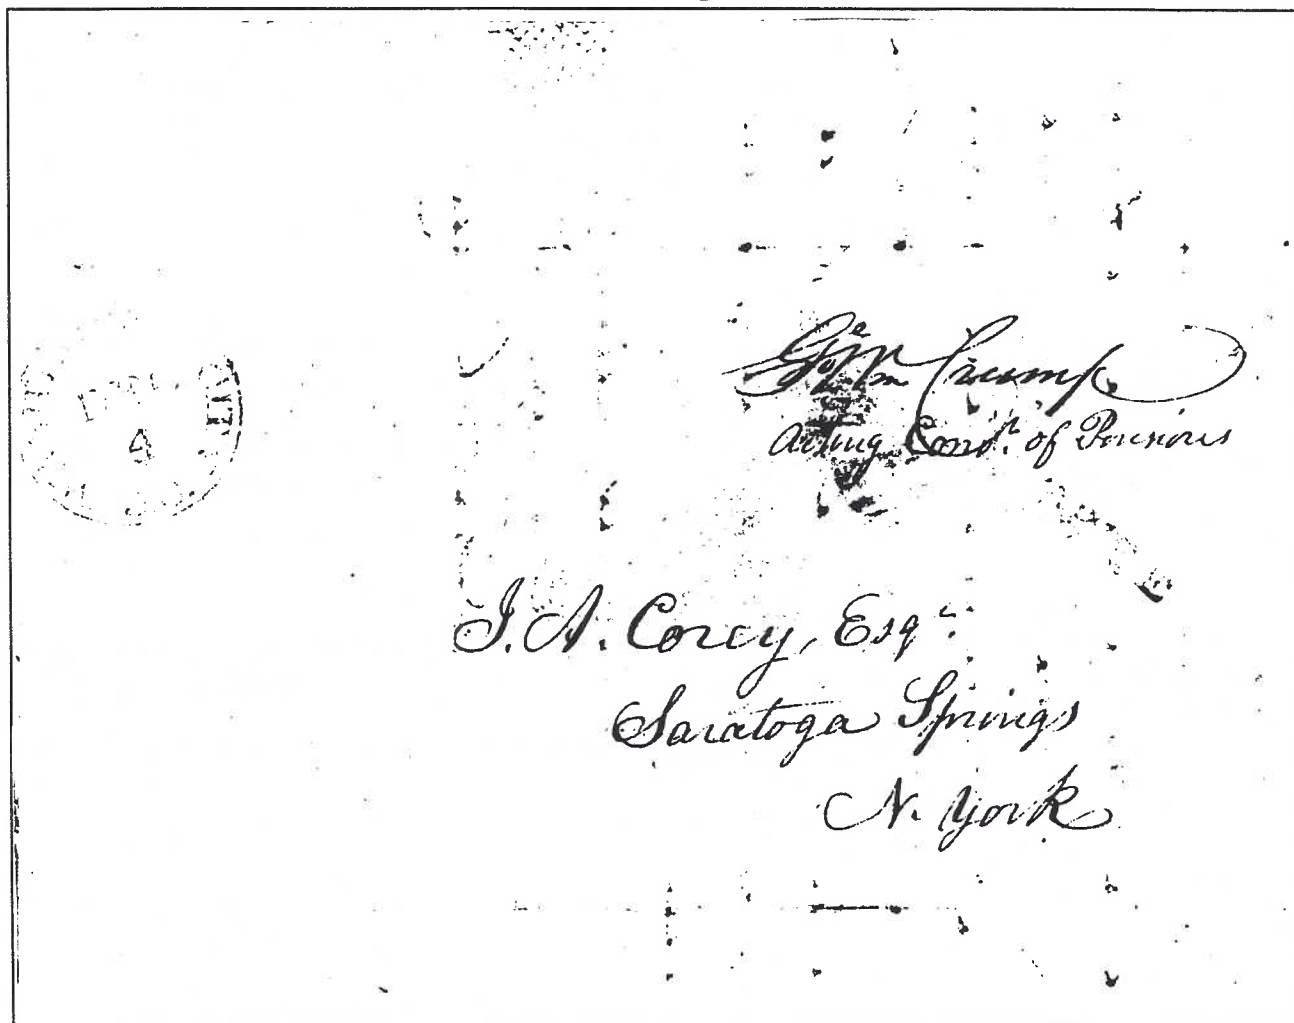 4
Geo Wm Crump
Acting Comr. of Pensions
J. A. Corey, Esqr.
Saratoga Springs
N. York